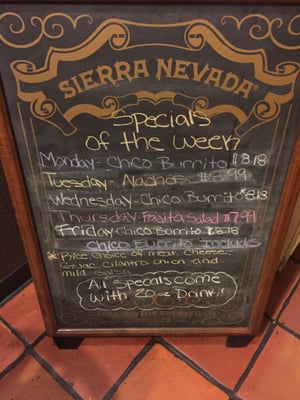 SIERRA NEVADA
Specials
of the week
Monday - Chico Burrito $8.18
Tuesday - Nachos $8.99
Wednesday - Chico Burrito $8.18
Thursday - Fajita Salad $7.99
Friday - Chico Burrito $8.18
Chico Burrito Includes
Rice, Choice of meat, Cheese,
Guac, Cilantro, onion and
mild salsa
All Specials come
with 20 oz Drink!!